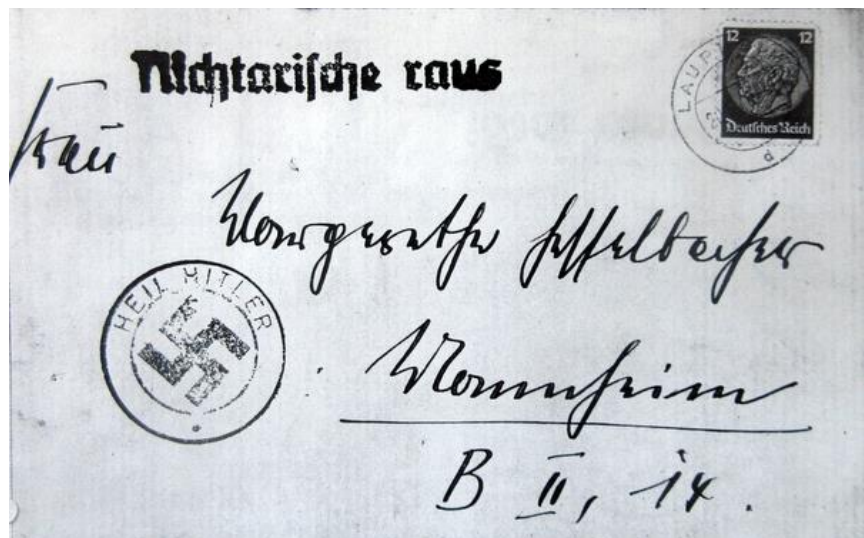 Nichtarische raus
12 12
Deutsches Reich
Frau
Margarethe Hesselbacher
HEIL HITLER
Mannheim
B II, 14.